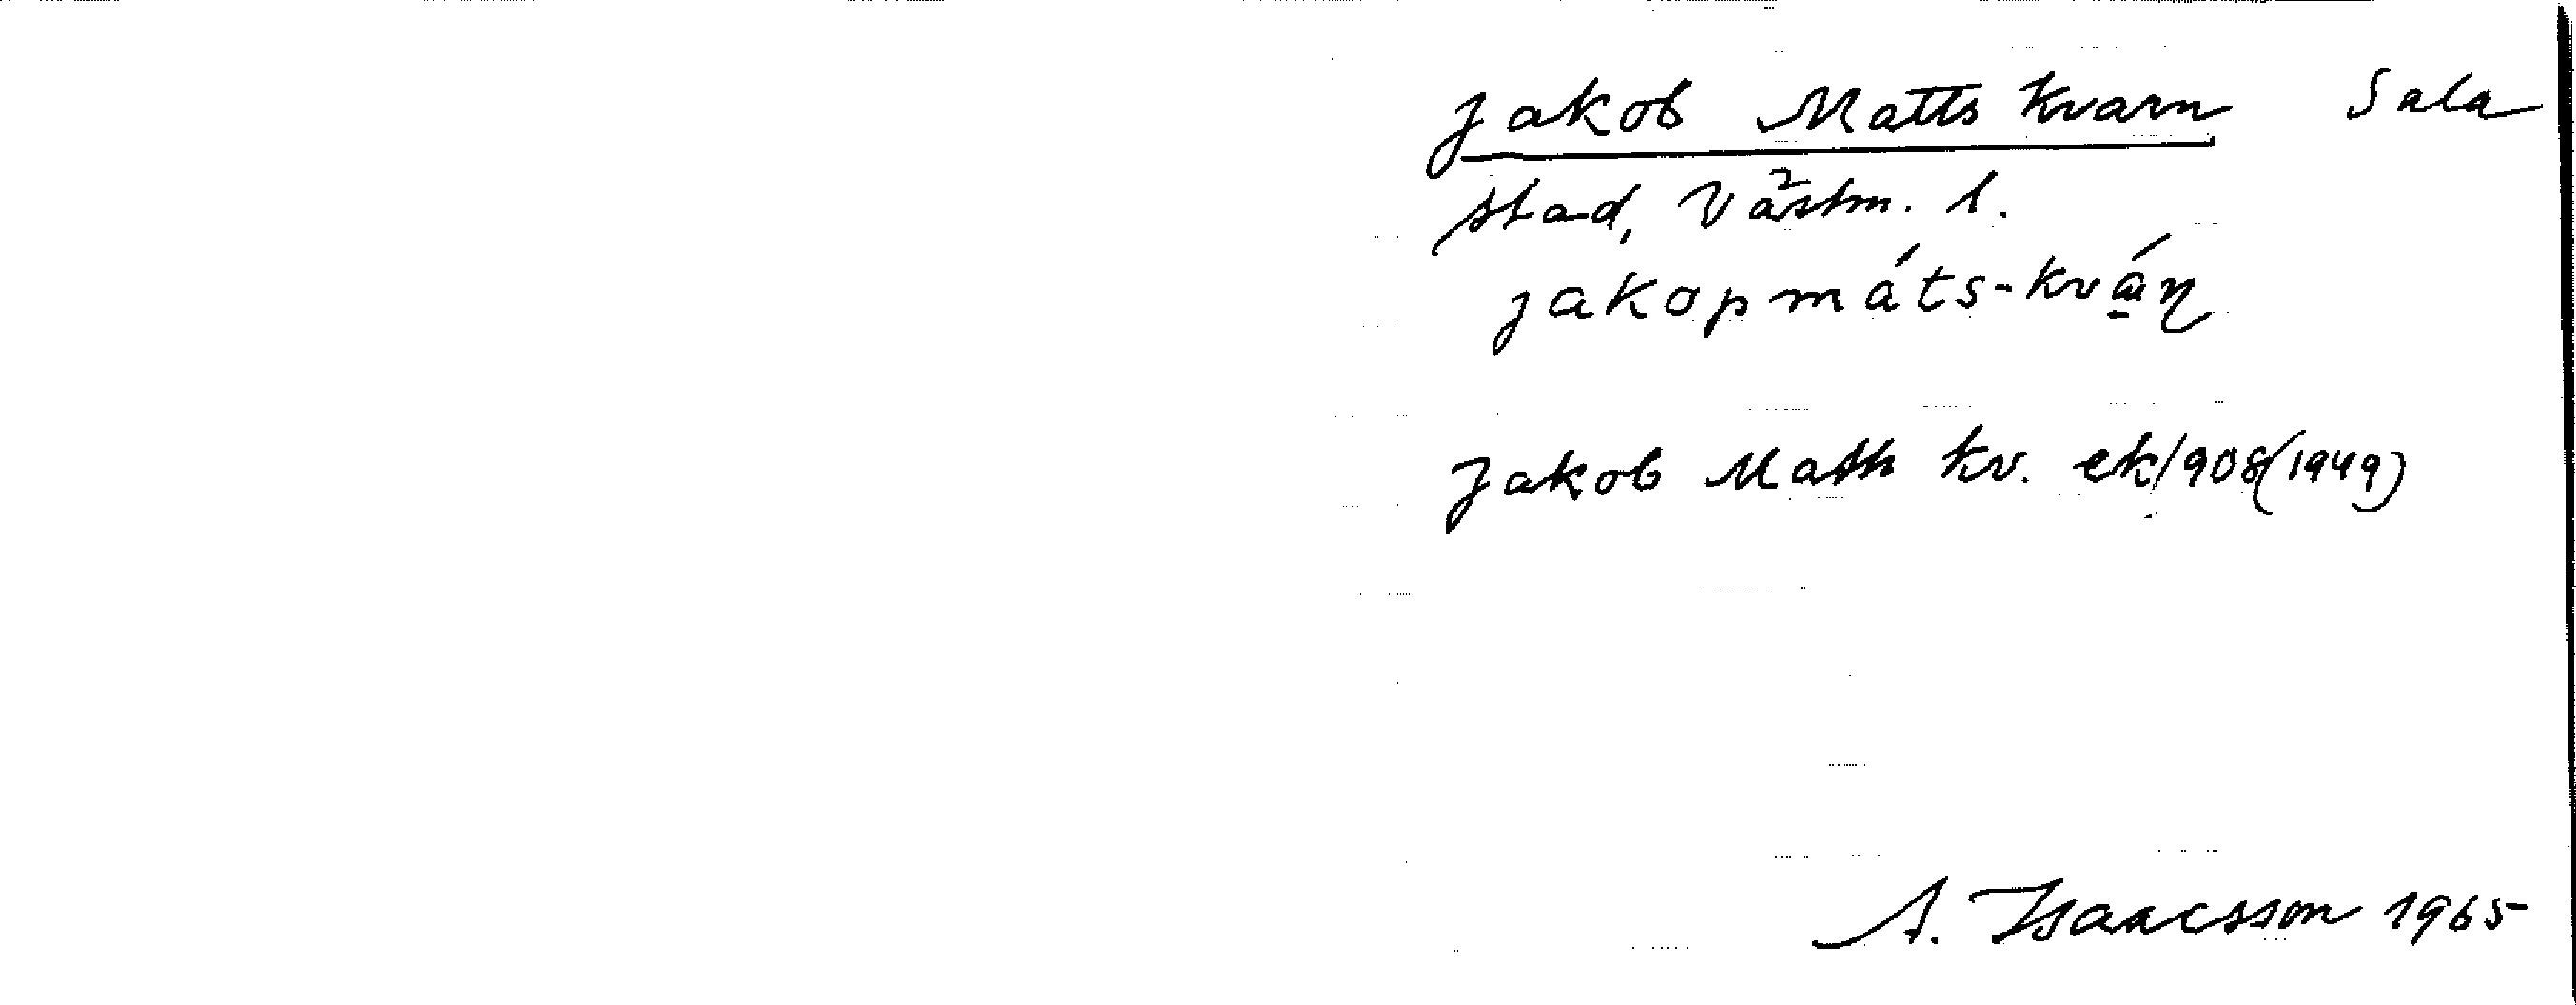 Jakob Matts Kvarn Sala
stad, Västm. l.
jakopmáts-kváṇ
Jakob Matts kv. ek/908(1949)
A. Isaacsson 1965